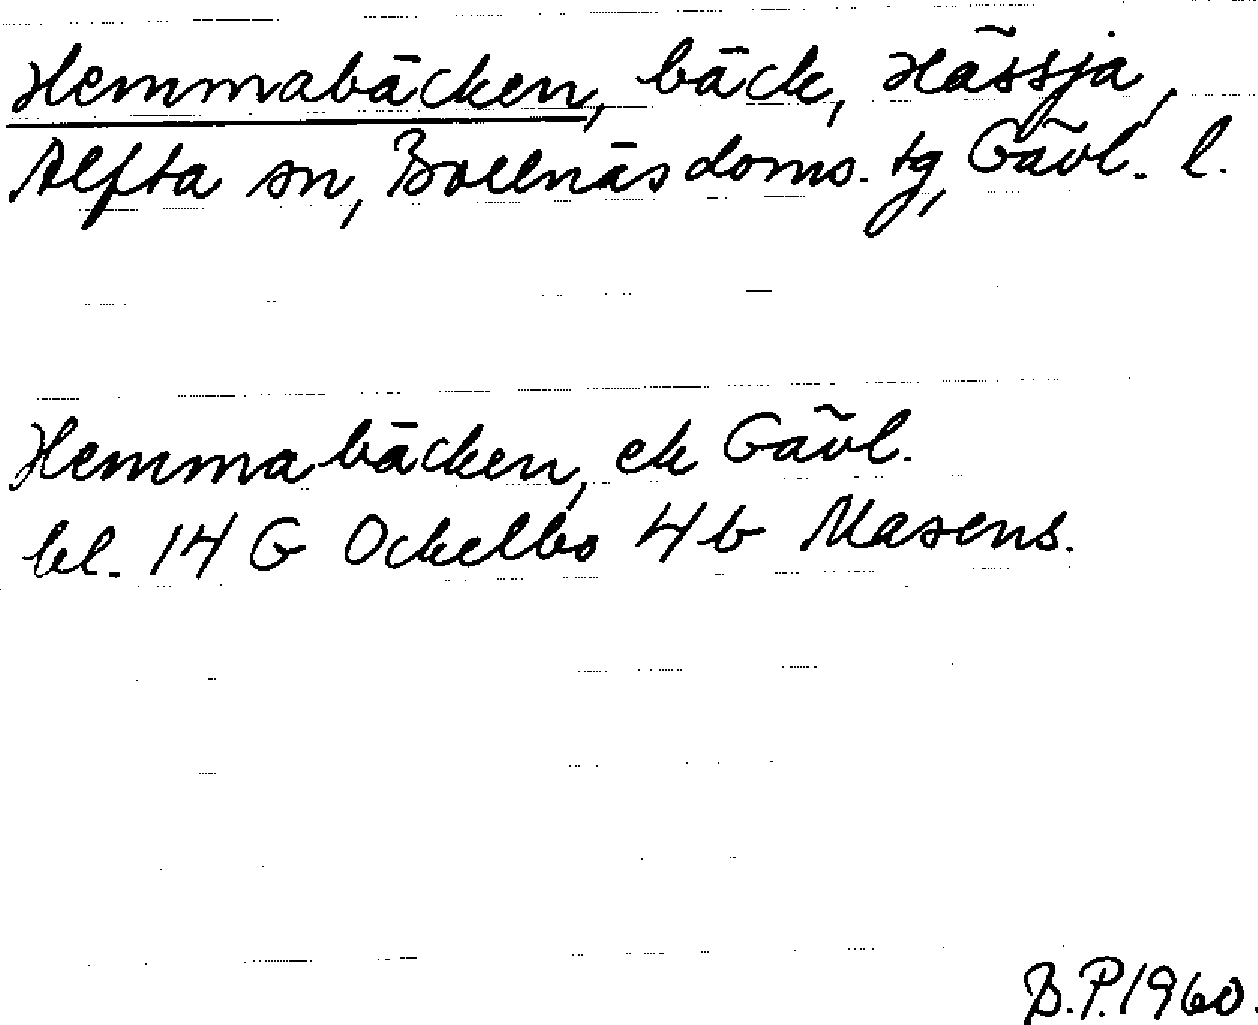 Hemmabäcken, bäck, Hässja,
Alfta sn, Bollnäs doms. tg, Gävl. l.
Hemmabäcken, ek Gävl.
bl. 14 G Ockelbo 4b Masens.
B.P. 1960.